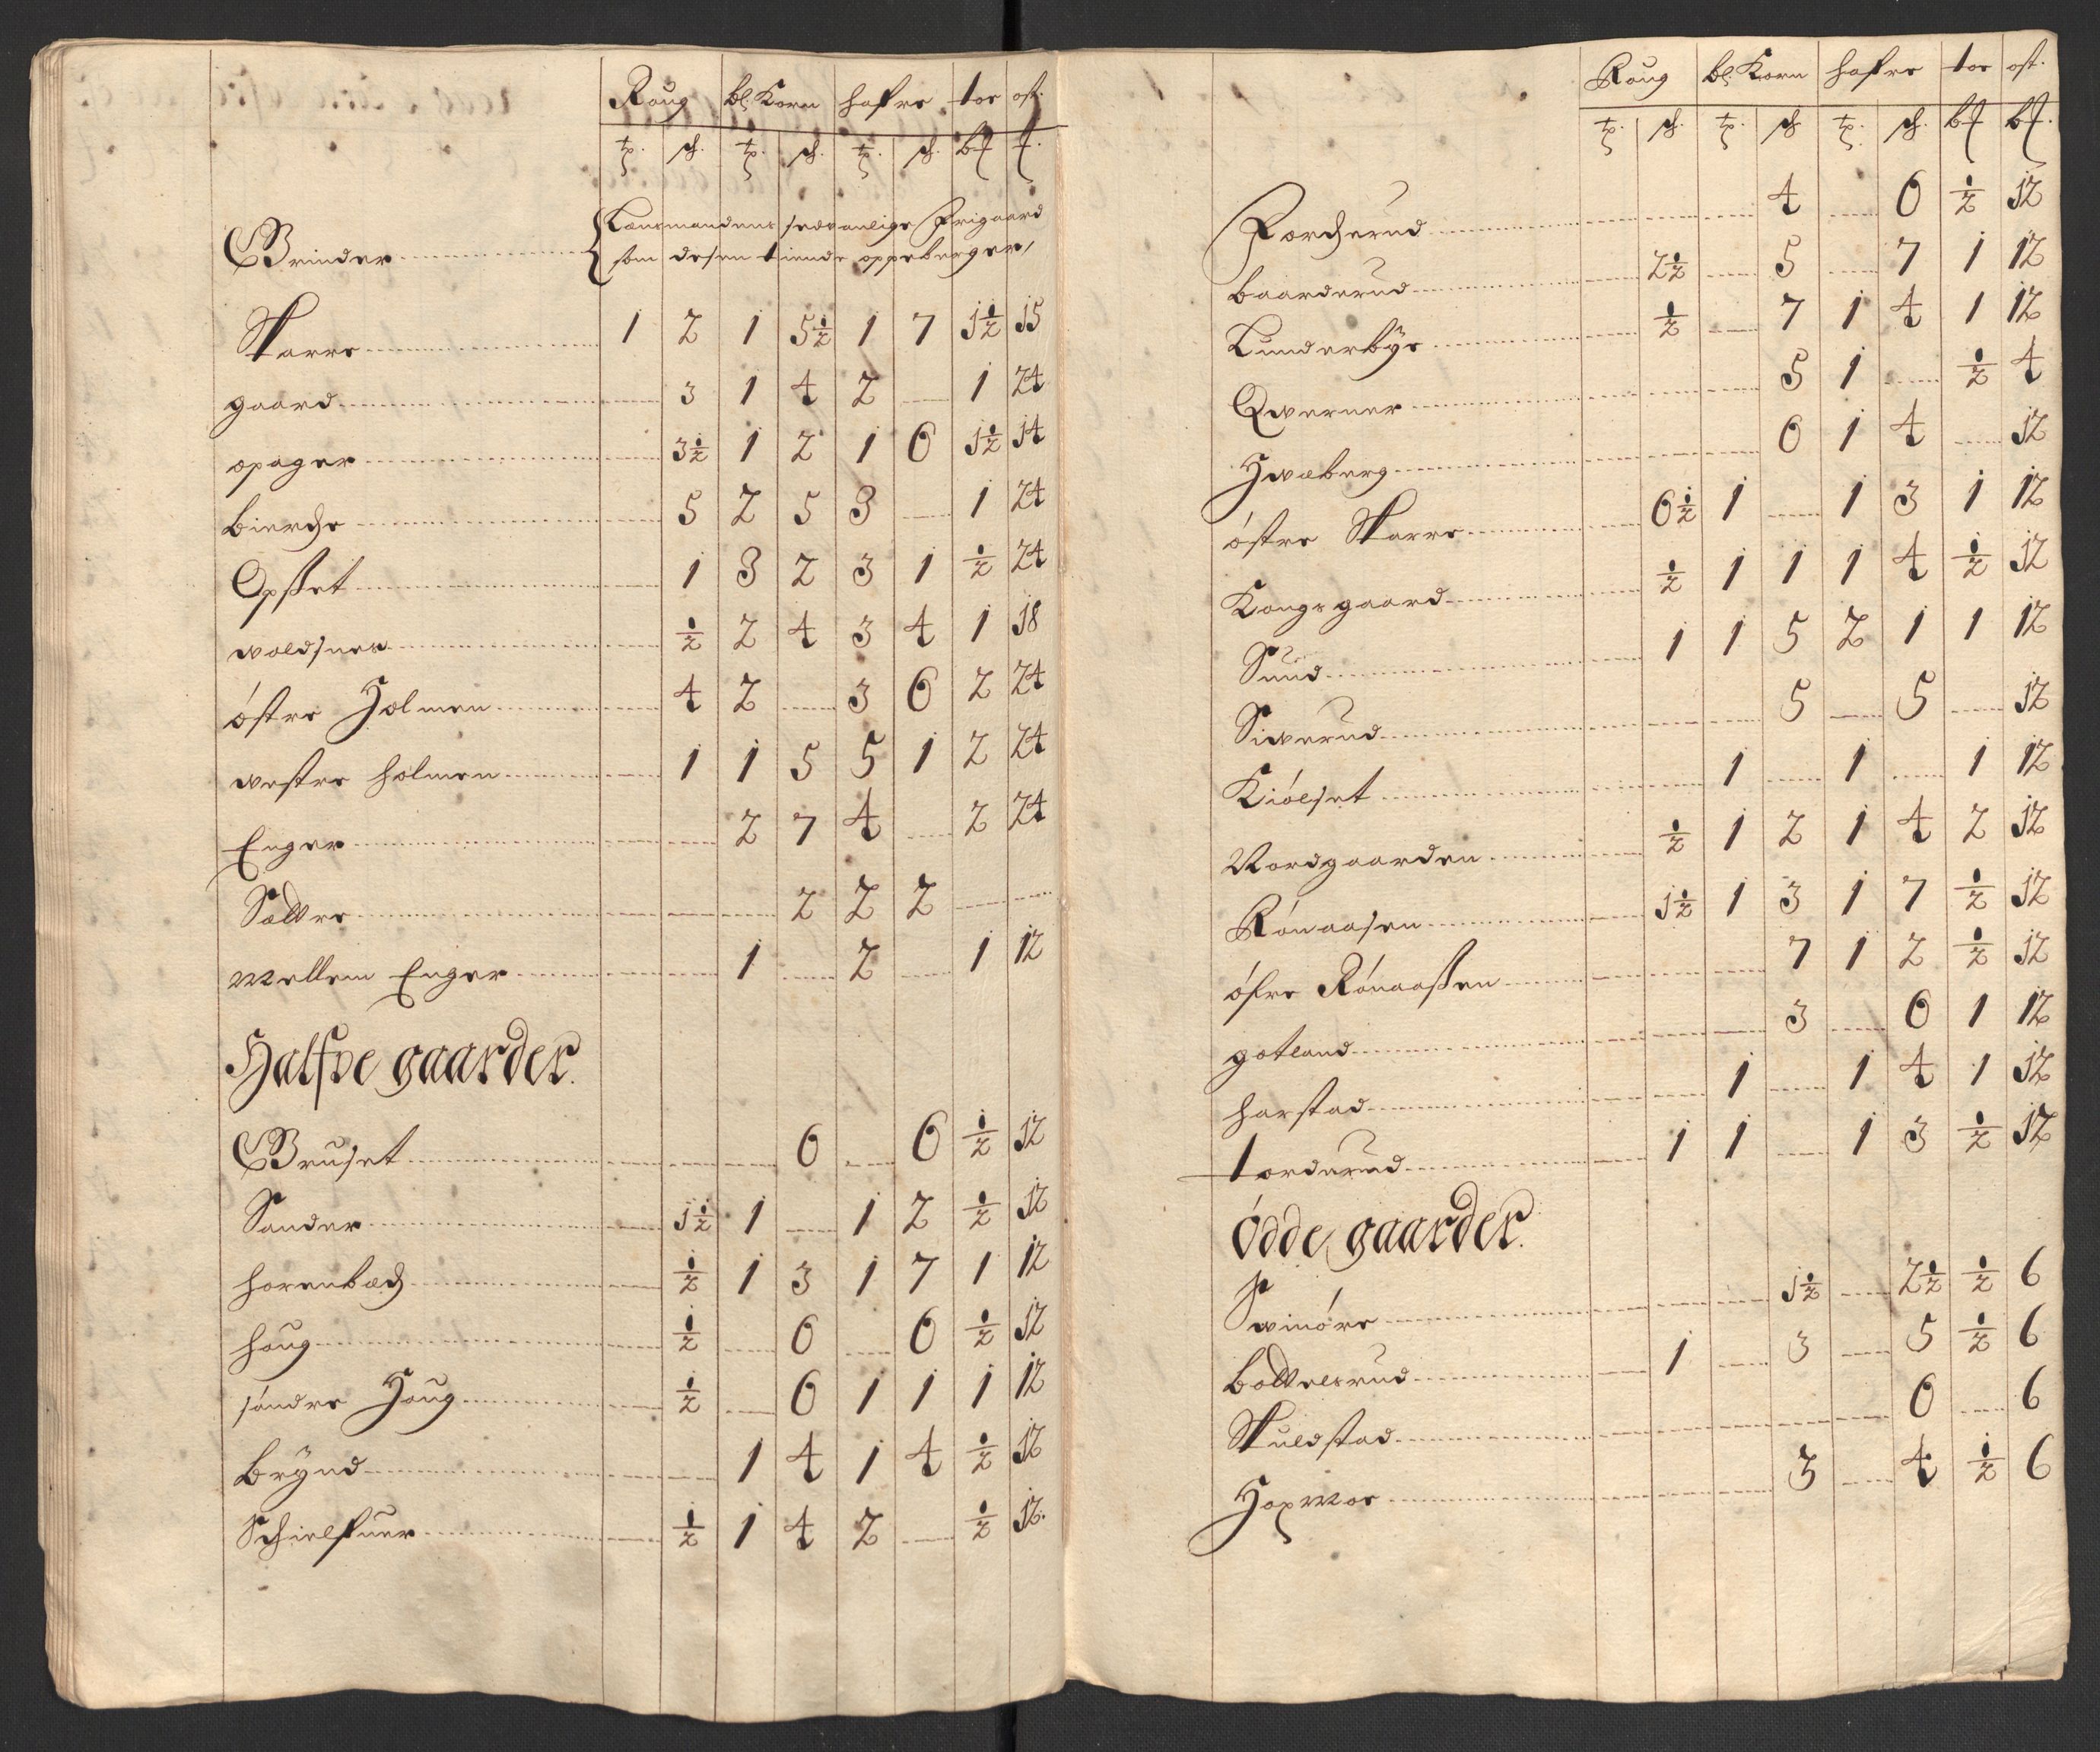 Roug bl: Korn hafre toe ost.
tp. sch. tp. sch. tp. sch. b℔ ℔.
Grinder Lensmandens sedvanlige Frigaard
som desen tiende oppeberger,
Skarre 1 2 1 5½ 1 7 1½ 15
gaard 3 1 4 2 1 24
opager 3½ 1 2 1 6 1½ 14
bierche 5 2 5 3 1 24
Opset 1 3 2 3 1 ½ 24
voldsnes ½ 2 4 3 4 1 18
östre Holmen 4 2 3 6 2 24
vestre holmen 1 1 5 5 1 2 24
Enger 2 7 4 2 24
Sættre 2 2 2
mellem Enger 1 2 1 12
Halfve gaarder.
Gruset 6 6 ½ 12
Sander 1½ 1 1 2 ½ 12
horenbæch ½ 1 3 1 7 1 12
houg ½ 6 6 ½ 12
söndre Houg ½ 6 1 1 1 12
Brÿnd 1 4 1 4 ½ 12
Schielfuer ½ 1 4 2 ½ 12.
Roug bl: Korn hafre toe ost.
tp. sch. tp. sch tp. sch. b℔ b℔.
Porcherud 4 6 ½ 12
baarderud 2½ 5 7 1 12
Lunderbÿe ½ 7 1 4 1 12
Qverner 5 1 ½ 4
Hvæberg 6 1 4 12
östre Skarre 6½ 1 1 3 1 12
Kongsgaard ½ 1 1 1 4 ½ 12
Sund 1 1 5 2 1 1 12
Siverud 5 5 12
Kiölset 1 1 1 12
Nordgaarden ½ 1 2 1 4 2 12
Rönaasen 1½ 1 3 1 7 ½ 12
öfre Rönaassen 7 1 2 ½ 12
gotland 3 6 1 12
harstad 1 1 4 1 12
torderud 1 1 1 3 ½ 12
Ödde gaarder.
Svinöre 1½ 2½ ½ 6
bottelsrud 1 3 5 ½ 6
Skulstad 6 6
Hapmoe 3 4 ½ 6